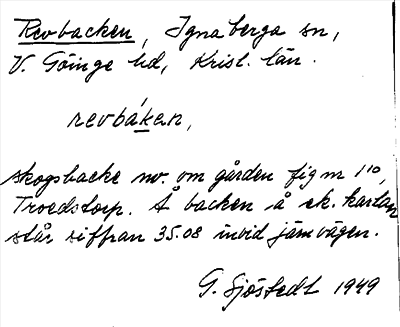 Revbacken, Ignaberga sn,
V. Göinge hd, Krist. län.
revbák̲en,
skogsbacke nv. om gården fig m 1¹⁰,
Troedstorp. Å backen å ek. kartan
står siffran 35.08 invid järnvägen.
G. Sjöstedt 1949